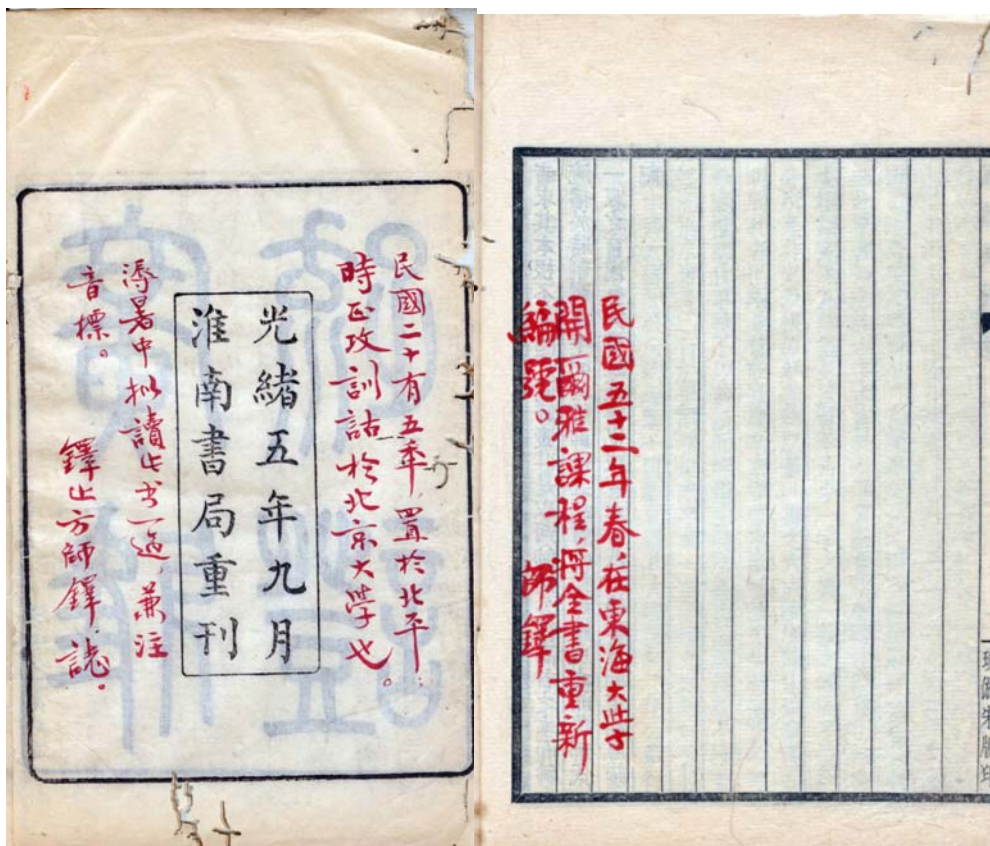 民國二十有五秊，置於北平；
時正攻訓詁於北京大學也。
光緒五年九月
淮南書局重刊
溽暑中拟讀此书一過，兼注
音標。
方師鐸誌。
民國五十二年春，在東海大學
開爾雅課程，將全書重新
編號。 師鐸